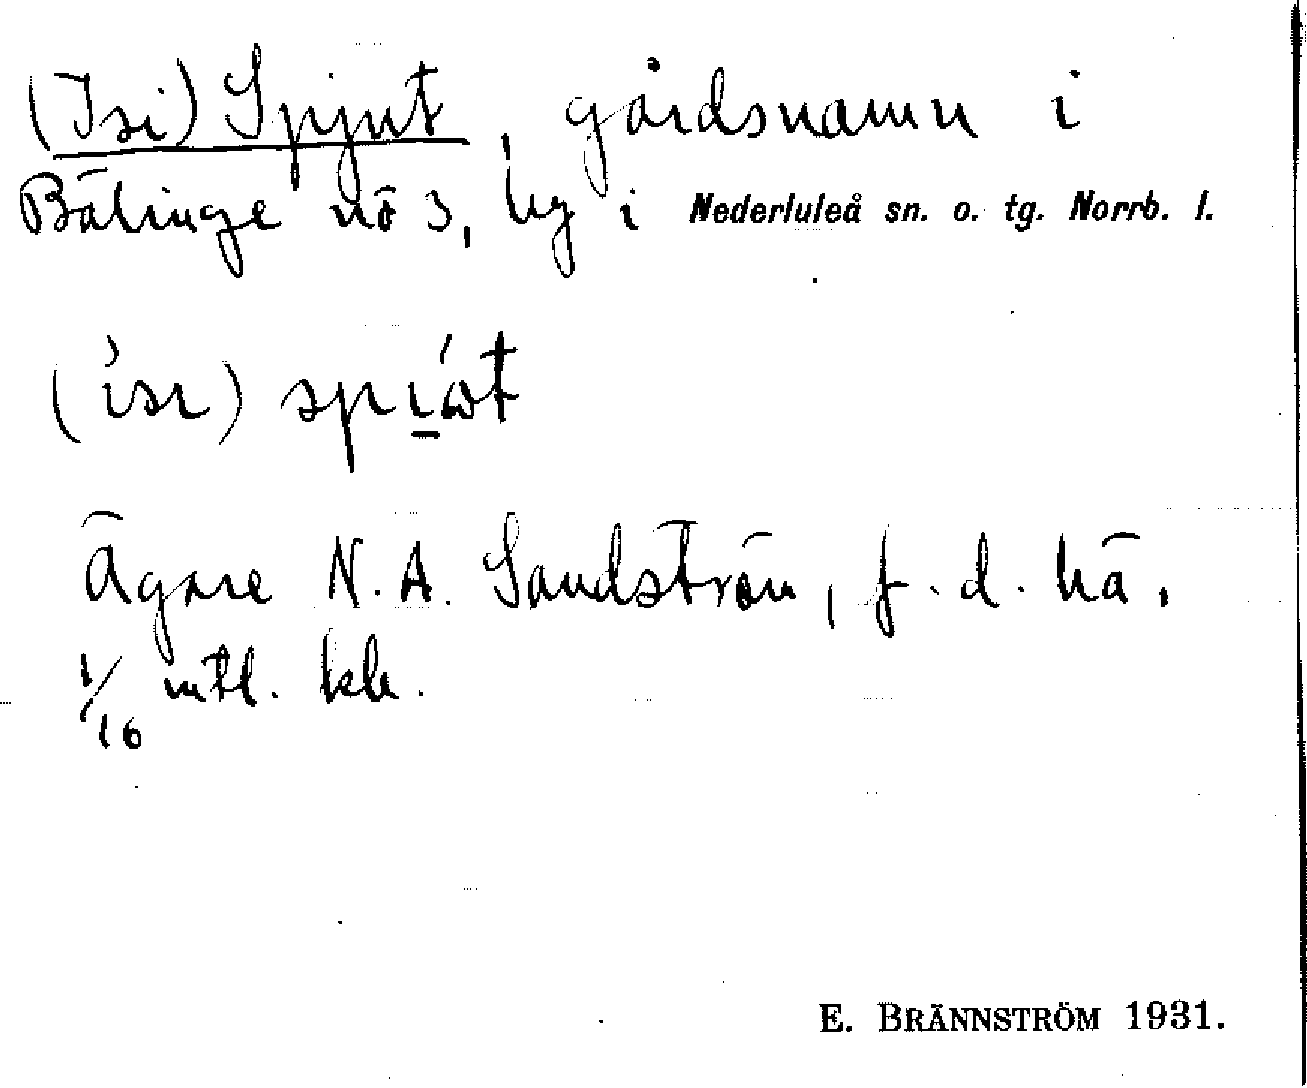 (Isi) Spjut, gårdsnamn i
Bälinge nö 3, by i Nederluleå sn. o. tg. Norrb. l.
(ìsı)
Ägare N. A. Sandström, f. d. hä.
1/16 mtl. kr.
E. BRÄNNSTRÖM 1931.